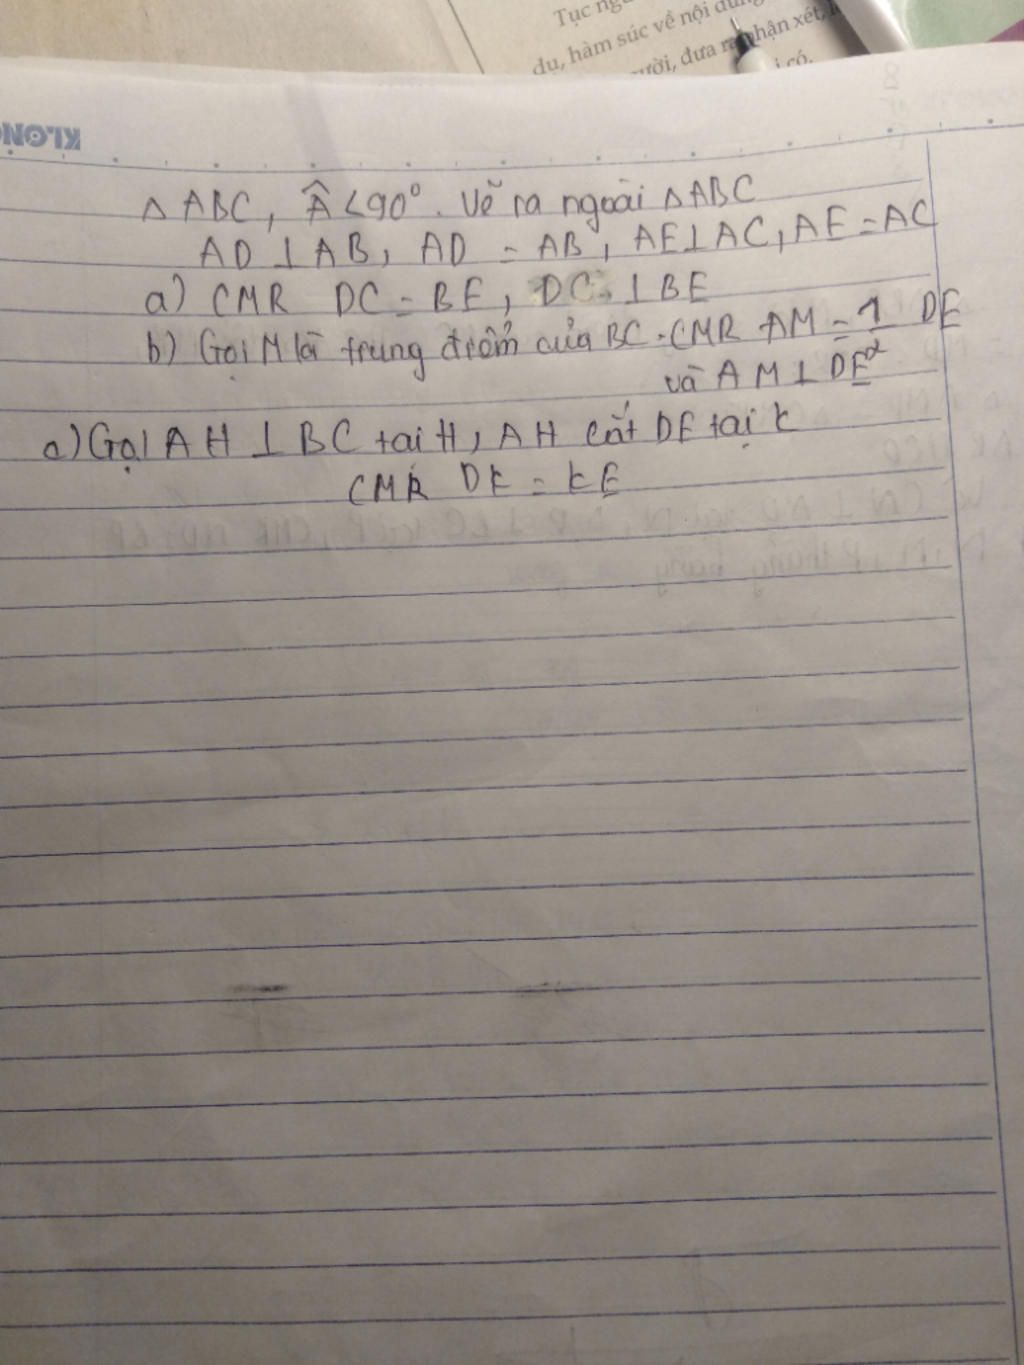 Tục ng
dụ, hàm súc về nội dung
ười, đưa ra nhận xét, l
i có.
KLONG
△ ABC, Â < 90°. Vẽ ra ngoài △ ABC
AD ⊥ AB, AD = AB, AE ⊥ AC, AE = AC
a) CMR DC = BE, DC ⊥ BE
b) Gọi M là trung điểm của BC. CMR AM = 1/2 DE
và AM ⊥ DE
c) Gọi AH ⊥ BC tại H, AH cắt DE tại K
CMR DK = KE